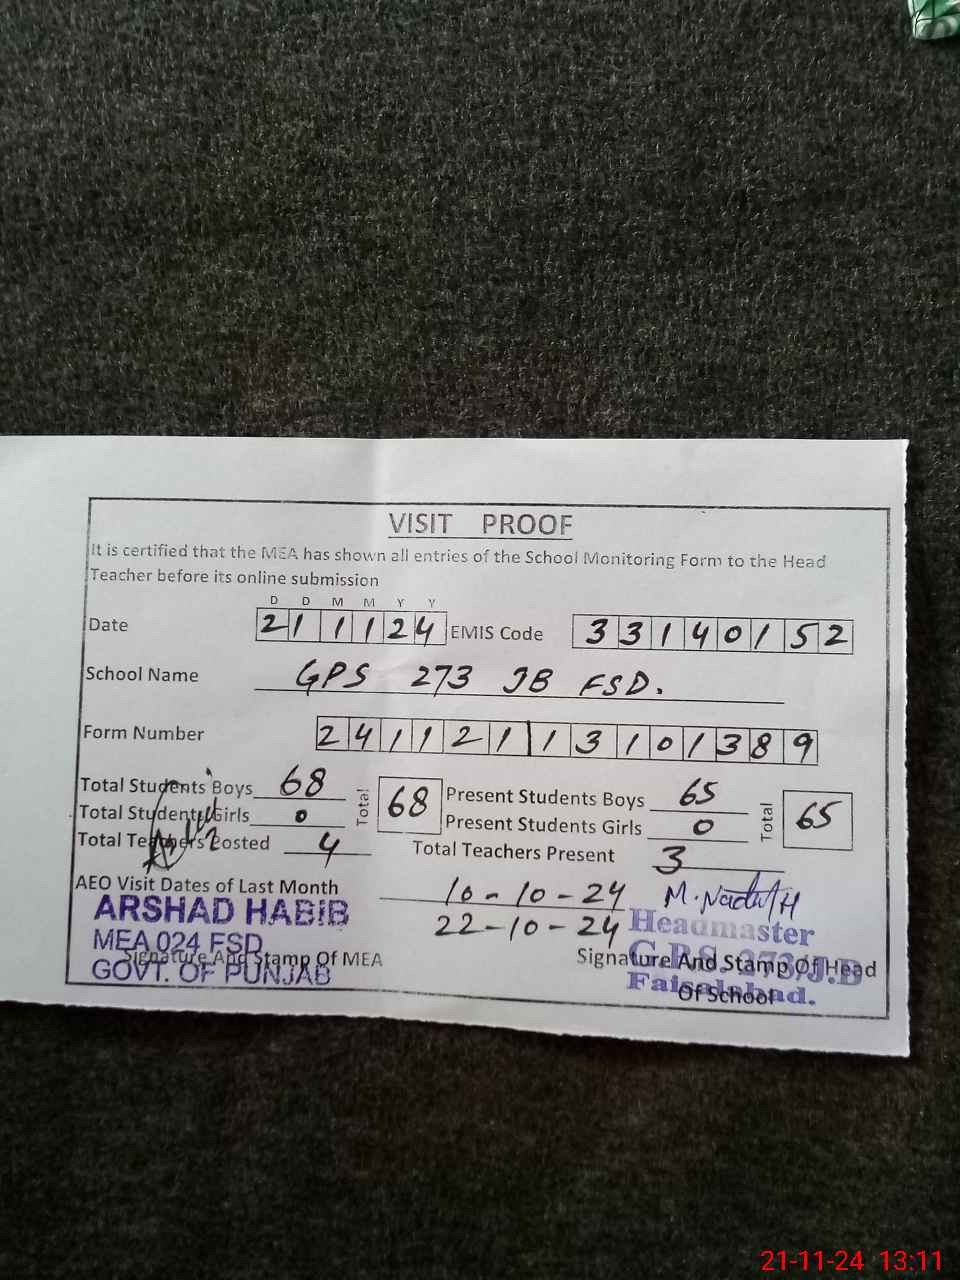 VISIT PROOF
It is certified that the MEA has shown all entries of the School Monitoring Form to the Head
Teacher before its online submission
D D M M Y Y
Date 2 1 1 1 2 4 EMIS Code 3 3 1 4 0 1 5 2
School Name GPS 273 JB FSD.
Form Number 2 4 1 1 2 1 1 3 1 0 1 3 8 9
Total Students Boys 68 Total 68 Present Students Boys 65 Total 65
Total Students Girls 0 Present Students Girls 0
Total Teachers Posted 4 Total Teachers Present 3
AEO Visit Dates of Last Month 10-10-24
22-10-24
ARSHAD HABIB
MEA 024 FSD
GOVT. OF PUNJAB
Signature And Stamp Of MEA
Headmaster
G.P.S. 273/J.B
Faisalabad.
Signature And Stamp Of Head
Of School
21-11-24 13:11